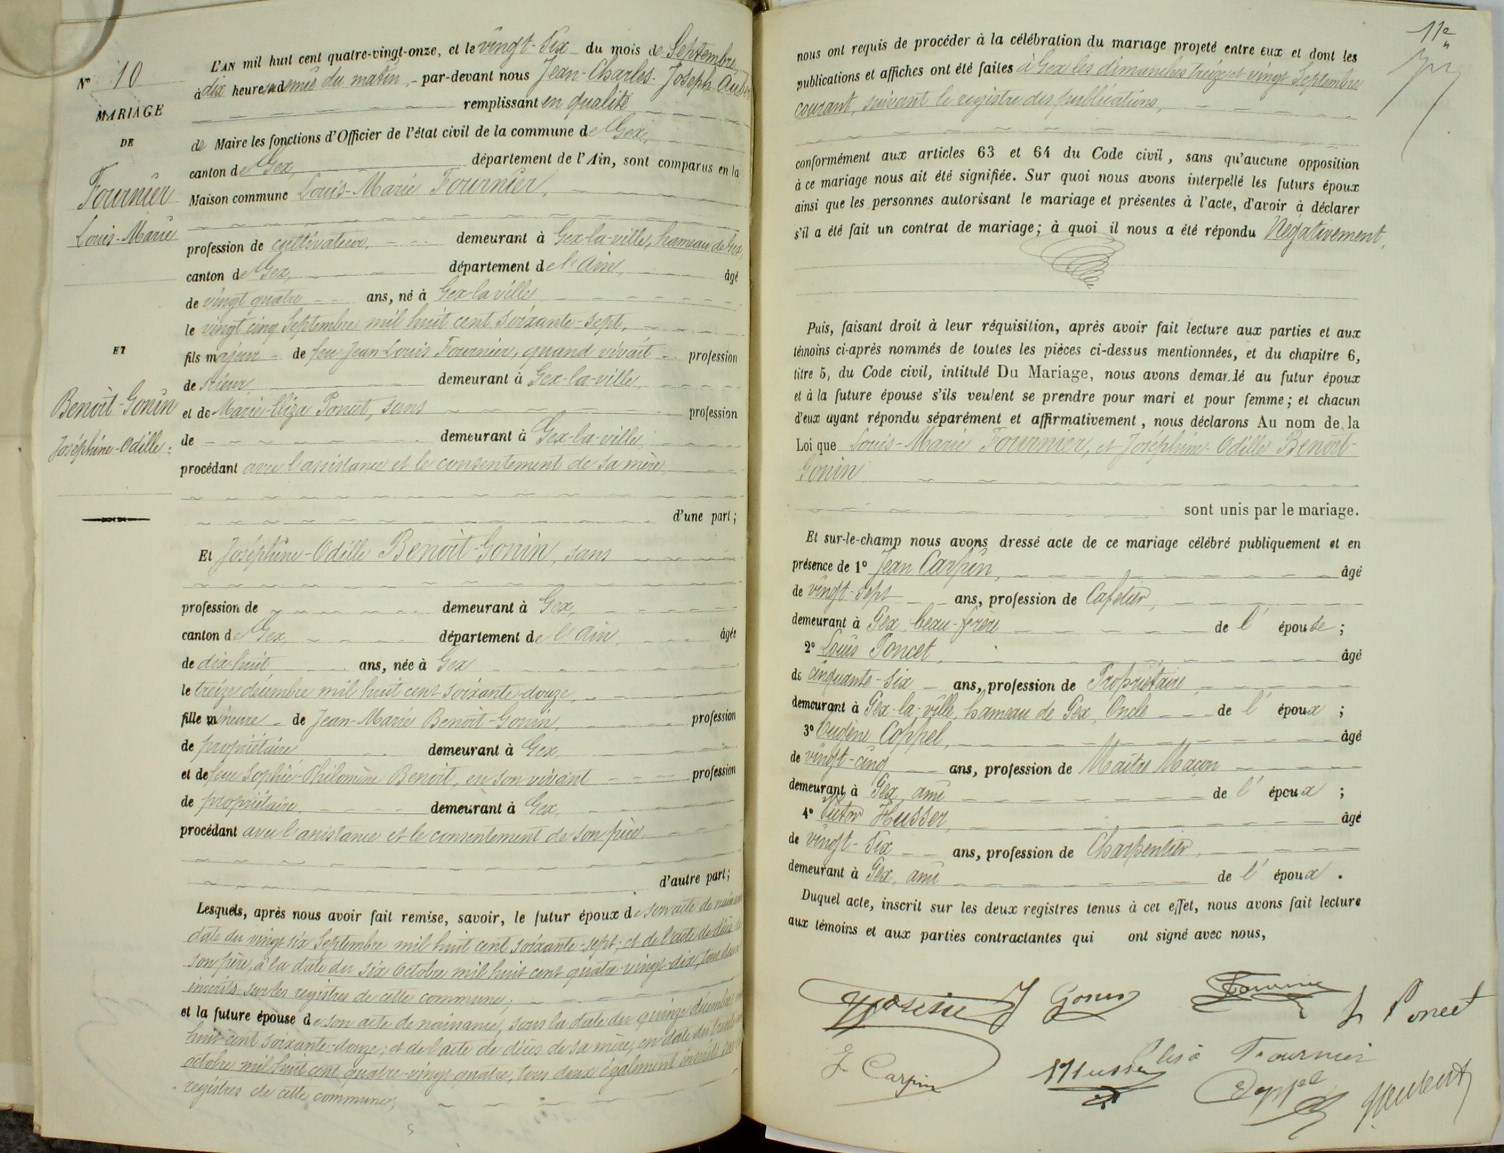 N° 10
MARIAGE
DE
Fournier
Louis-Marie
ET
Benoît-Gonin
Joséphine-Odille
L'AN mil huit cent quatre-vingt-onze, et le vingt-six du mois de Septembre
à dix heures et demie du matin, par-devant nous Jean-Charles-Joseph
remplissant en qualité
de Maire les fonctions d'Officier de l'état civil de la commune de Gex,
canton de Gex, département de l'Ain, sont comparus en la
Maison commune Louis-Marie Fournier,
profession de cultivateur, demeurant à Gex-la-ville, hameau de Gex,
canton de Gex, département de l'Ain, âgé
de vingt quatre ans, né à Gex-la-ville
le vingt cinq Septembre mil huit cent soixante-sept,
fils majeur de feu Jean Louis Fournier, quand vivait profession
de demeurant à Gex-la-ville
et de Marie-Eliza Poncet, sans profession
de demeurant à Gex-la-ville
procédant avec l'assistance et le consentement de sa mère
d'une part;
Et Joséphine-Odille Benoît-Gonin, sans
profession de demeurant à Gex,
canton de Gex, département de l'Ain, âgée
de dix-huit ans, née à Gex
le treize décembre mil huit cent soixante-douze,
fille mineure de Jean-Marie Benoît-Gonin, profession
de propriétaire demeurant à Gex,
et de feue Sophie-Philomène Benoît, en son vivant profession
de propriétaire demeurant à Gex,
procédant avec l'assistance et le consentement de son père
d'autre part;
Lesquels, après nous avoir fait remise, savoir, le futur époux de son acte de naissance
date du vingt six Septembre mil huit cent soixante-sept; et de l'acte de décès de
son père, à la date du six octobre mil huit cent quatre-vingt-dix, tous deux
inscrits sur les registres de cette commune;
et la future épouse de son acte de naissance, sous la date du quinze décembre
huit cent soixante-douze; et de l'acte de décès de sa mère, en date du
octobre mil huit cent quatre-vingt quatre, tous deux également inscrits
registres de cette commune,
11e
nous ont requis de procéder à la célébration du mariage projeté entre eux et dont les
publications et affiches ont été faites à Gex les dimanches treize et vingt Septembre
courant, suivant le registre des publications,
conformément aux articles 63 et 64 du Code civil, sans qu'aucune opposition
à ce mariage nous ait été signifiée. Sur quoi nous avons interpellé les futurs époux
ainsi que les personnes autorisant le mariage et présentes à l'acte, d'avoir à déclarer
s'il a été fait un contrat de mariage; à quoi il nous a été répondu Négativement.
Puis, faisant droit à leur réquisition, après avoir fait lecture aux parties et aux
témoins ci-après nommés de toutes les pièces ci-dessus mentionnées, et du chapitre 6,
titre 5, du Code civil, intitulé Du Mariage, nous avons demandé au futur époux
et à la future épouse s'ils veulent se prendre pour mari et pour femme; et chacun
d'eux ayant répondu séparément et affirmativement, nous déclarons Au nom de la
Loi que Louis-Marie Fournier, et Joséphine-Odille Benoît-
Gonin
sont unis par le mariage.
Et sur-le-champ nous avons dressé acte de ce mariage célébré publiquement et en
présence de 1° Jean Carpin, âgé
de vingt-sept ans, profession de Cafetier,
demeurant à Gex, beau-frère de l'épouse;
2° Louis Poncet, âgé
de cinquante-six ans, profession de Propriétaire,
demeurant à Gex-la-ville, hameau de Gex, Oncle de l'époux;
3° Eugène Coppel, âgé
de vingt-cinq ans, profession de Maître Maçon
demeurant à Gex, ami de l'époux;
4° Victor Husser, âgé
de vingt-six ans, profession de Charpentier,
demeurant à Gex, ami de l'époux.
Duquel acte, inscrit sur les deux registres tenus à cet effet, nous avons fait lecture
aux témoins et aux parties contractantes qui ont signé avec nous,
J Gonin
Fournier
L Poncet
J Carpin
Husser
Elisa Fournier
Coppel